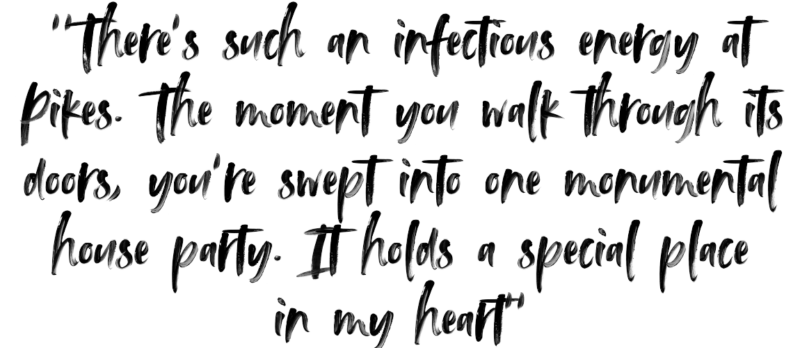 "There's such an infectious energy at
Pikes. The moment you walk through its
doors, you're swept into one monumental
house party. It holds a special place
in my heart"